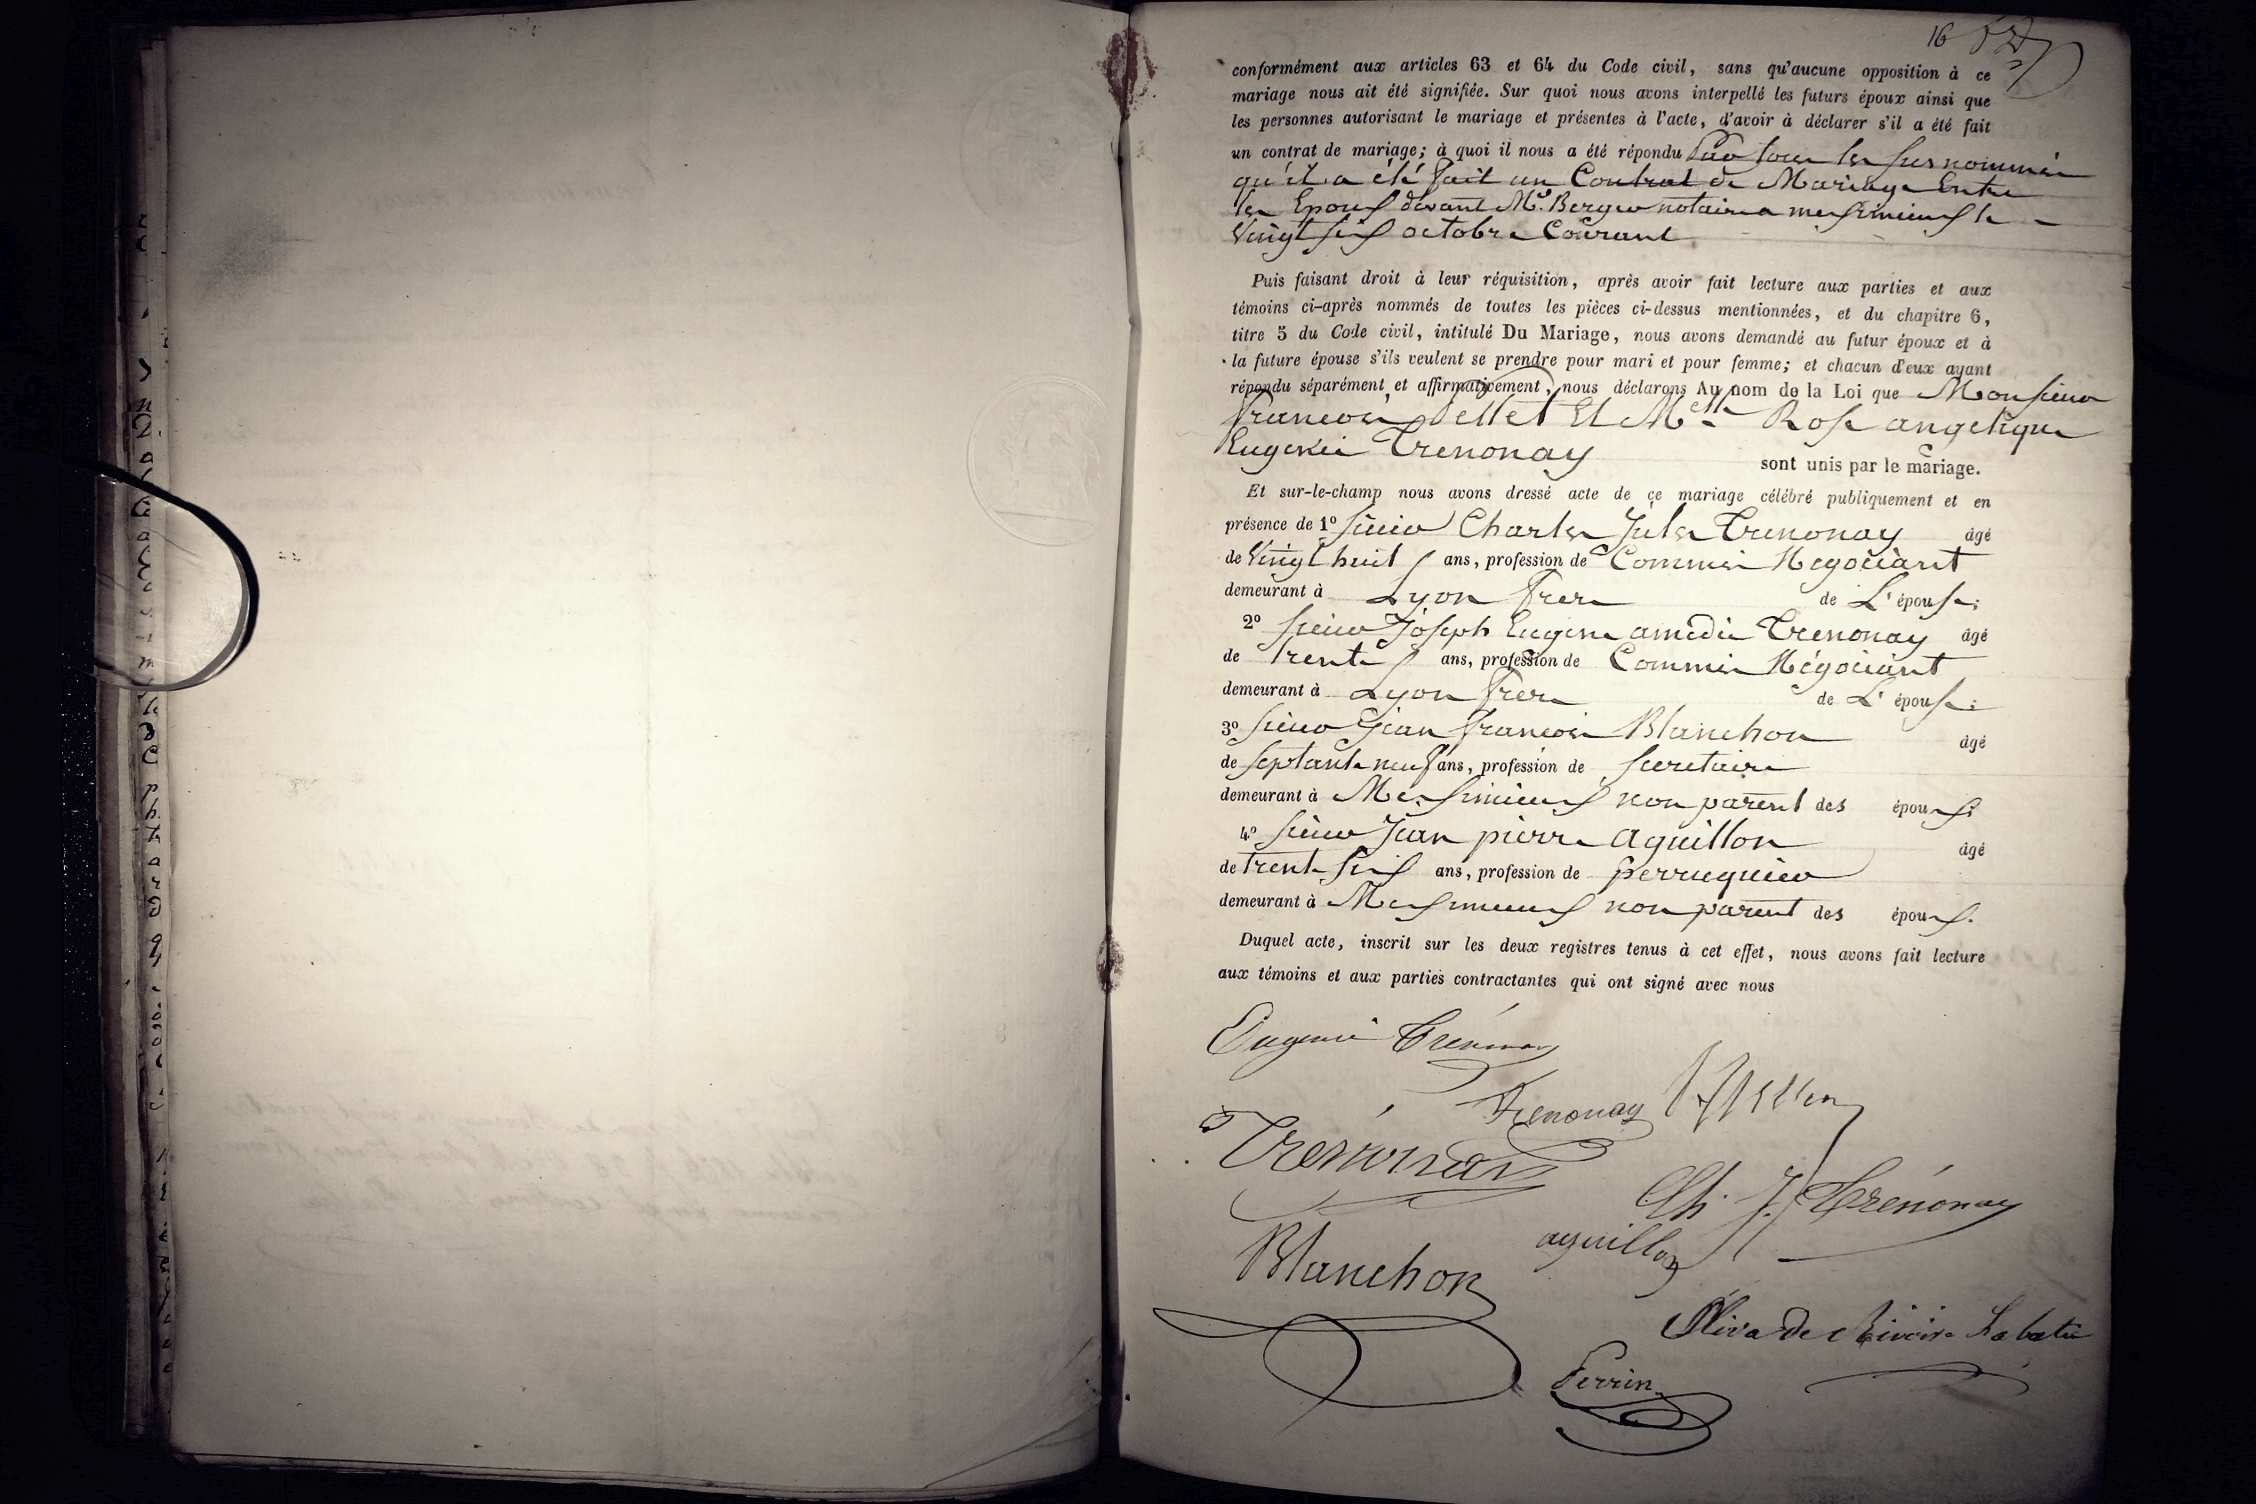 16
conformément aux articles 63 et 64 du Code civil, sans qu'aucune opposition à ce
mariage nous ait été signifiée. Sur quoi nous avons interpellé les futurs époux ainsi que
les personnes autorisant le mariage et présentes à l'acte, d'avoir à déclarer s'il a été fait
un contrat de mariage; à quoi il nous a été répondu Par tous les susnommés
qu'il a été fait un Contrat de Mariage Entre
les Epoux devant Me. Berger notaire a messimieux le
Vingt six octobre Courant
Puis faisant droit à leur réquisition, après avoir fait lecture aux parties et aux
témoins ci-après nommés de toutes les pièces ci-dessus mentionnées, et du chapitre 6,
titre 5 du Code civil, intitulé Du Mariage, nous avons demandé au futur époux et à
la future épouse s'ils veulent se prendre pour mari et pour femme; et chacun d'eux ayant
répondu séparément et affirmativement, nous déclarons Au nom de la Loi que Monsieur
francois Pellet Et Melle Rose angelique
Eugenie Trenonay sont unis par le mariage.
Et sur-le-champ nous avons dressé acte de ce mariage célébré publiquement et en
présence de 1º sieur Charles Jules Trenonay âgé
de Vingt huit ans, profession de Commis Négociant
demeurant à Lyon frere de L'épouse;
2º sieur Joseph Eugene amédée Trenonay âgé
de trente ans, profession de Commis Négociant
demeurant à Lyon frere de L'épouse;
3º sieur jean francois Blanchon âgé
de septante neuf ans, profession de secretaire
demeurant à Messimieux non parent des époux;
4º sieur Jean pierre aguillon âgé
de trente six ans, profession de perruquier
demeurant à Messimieux non parent des époux.
Duquel acte, inscrit sur les deux registres tenus à cet effet, nous avons fait lecture
aux témoins et aux parties contractantes qui ont signé avec nous
Eugenie Trénonay
Trenonay
Trenonay
Ch. J. Trénonay
aguillon
Blanchon
Oliva de Rivoire Labatie
Perrin